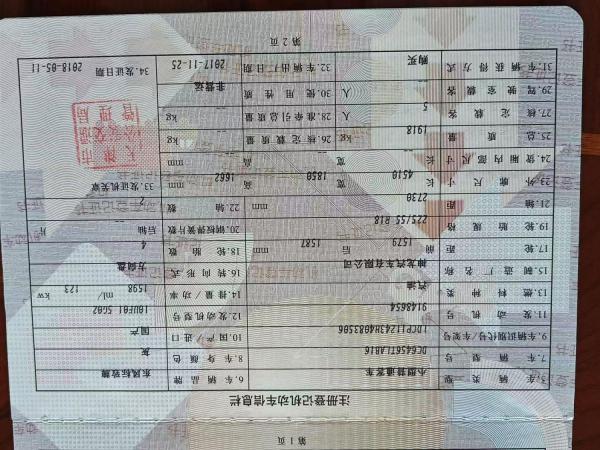 第 1 页
注册登记机动车信息栏
5.车辆类型 小型普通客车 6.车辆品牌 东风标致牌
7.车辆型号 DC6456TLAB16 8.车身颜色 灰
9.车辆识别代号/车架号 10.国产/进口 国产
11.发动机号 9148654 12.发动机型号 10UF01 5G02
13.燃料种类 汽油 14.排量/功率 1598 ml/ 123 kw
15.制造厂名称 神龙汽车有限公司 16.转向形式 方向盘
17.轮距 前 1579 后 1587 mm 18.轮胎数 4
19.轮胎规格 225/55 R18 20.钢板弹簧片数 后轴 -- 片
21.轴距 2730 mm 22.轴数 2
23.外廓尺寸 长 4510 宽 1850 高 1662 mm 33.发证机关章
24.货厢内部尺寸 长 -- 宽 -- 高 -- mm
25.总质量 1918 kg 26.核定载质量 -- kg
27.核定载客 5 人 28.准牵引总质量 -- kg
29.驾驶室载客 -- 人 30.使用性质 非营运
31.车辆获得方式 购买 32.车辆出厂日期 2017-11-25 34.发证日期 2018-05-11
第 2 页